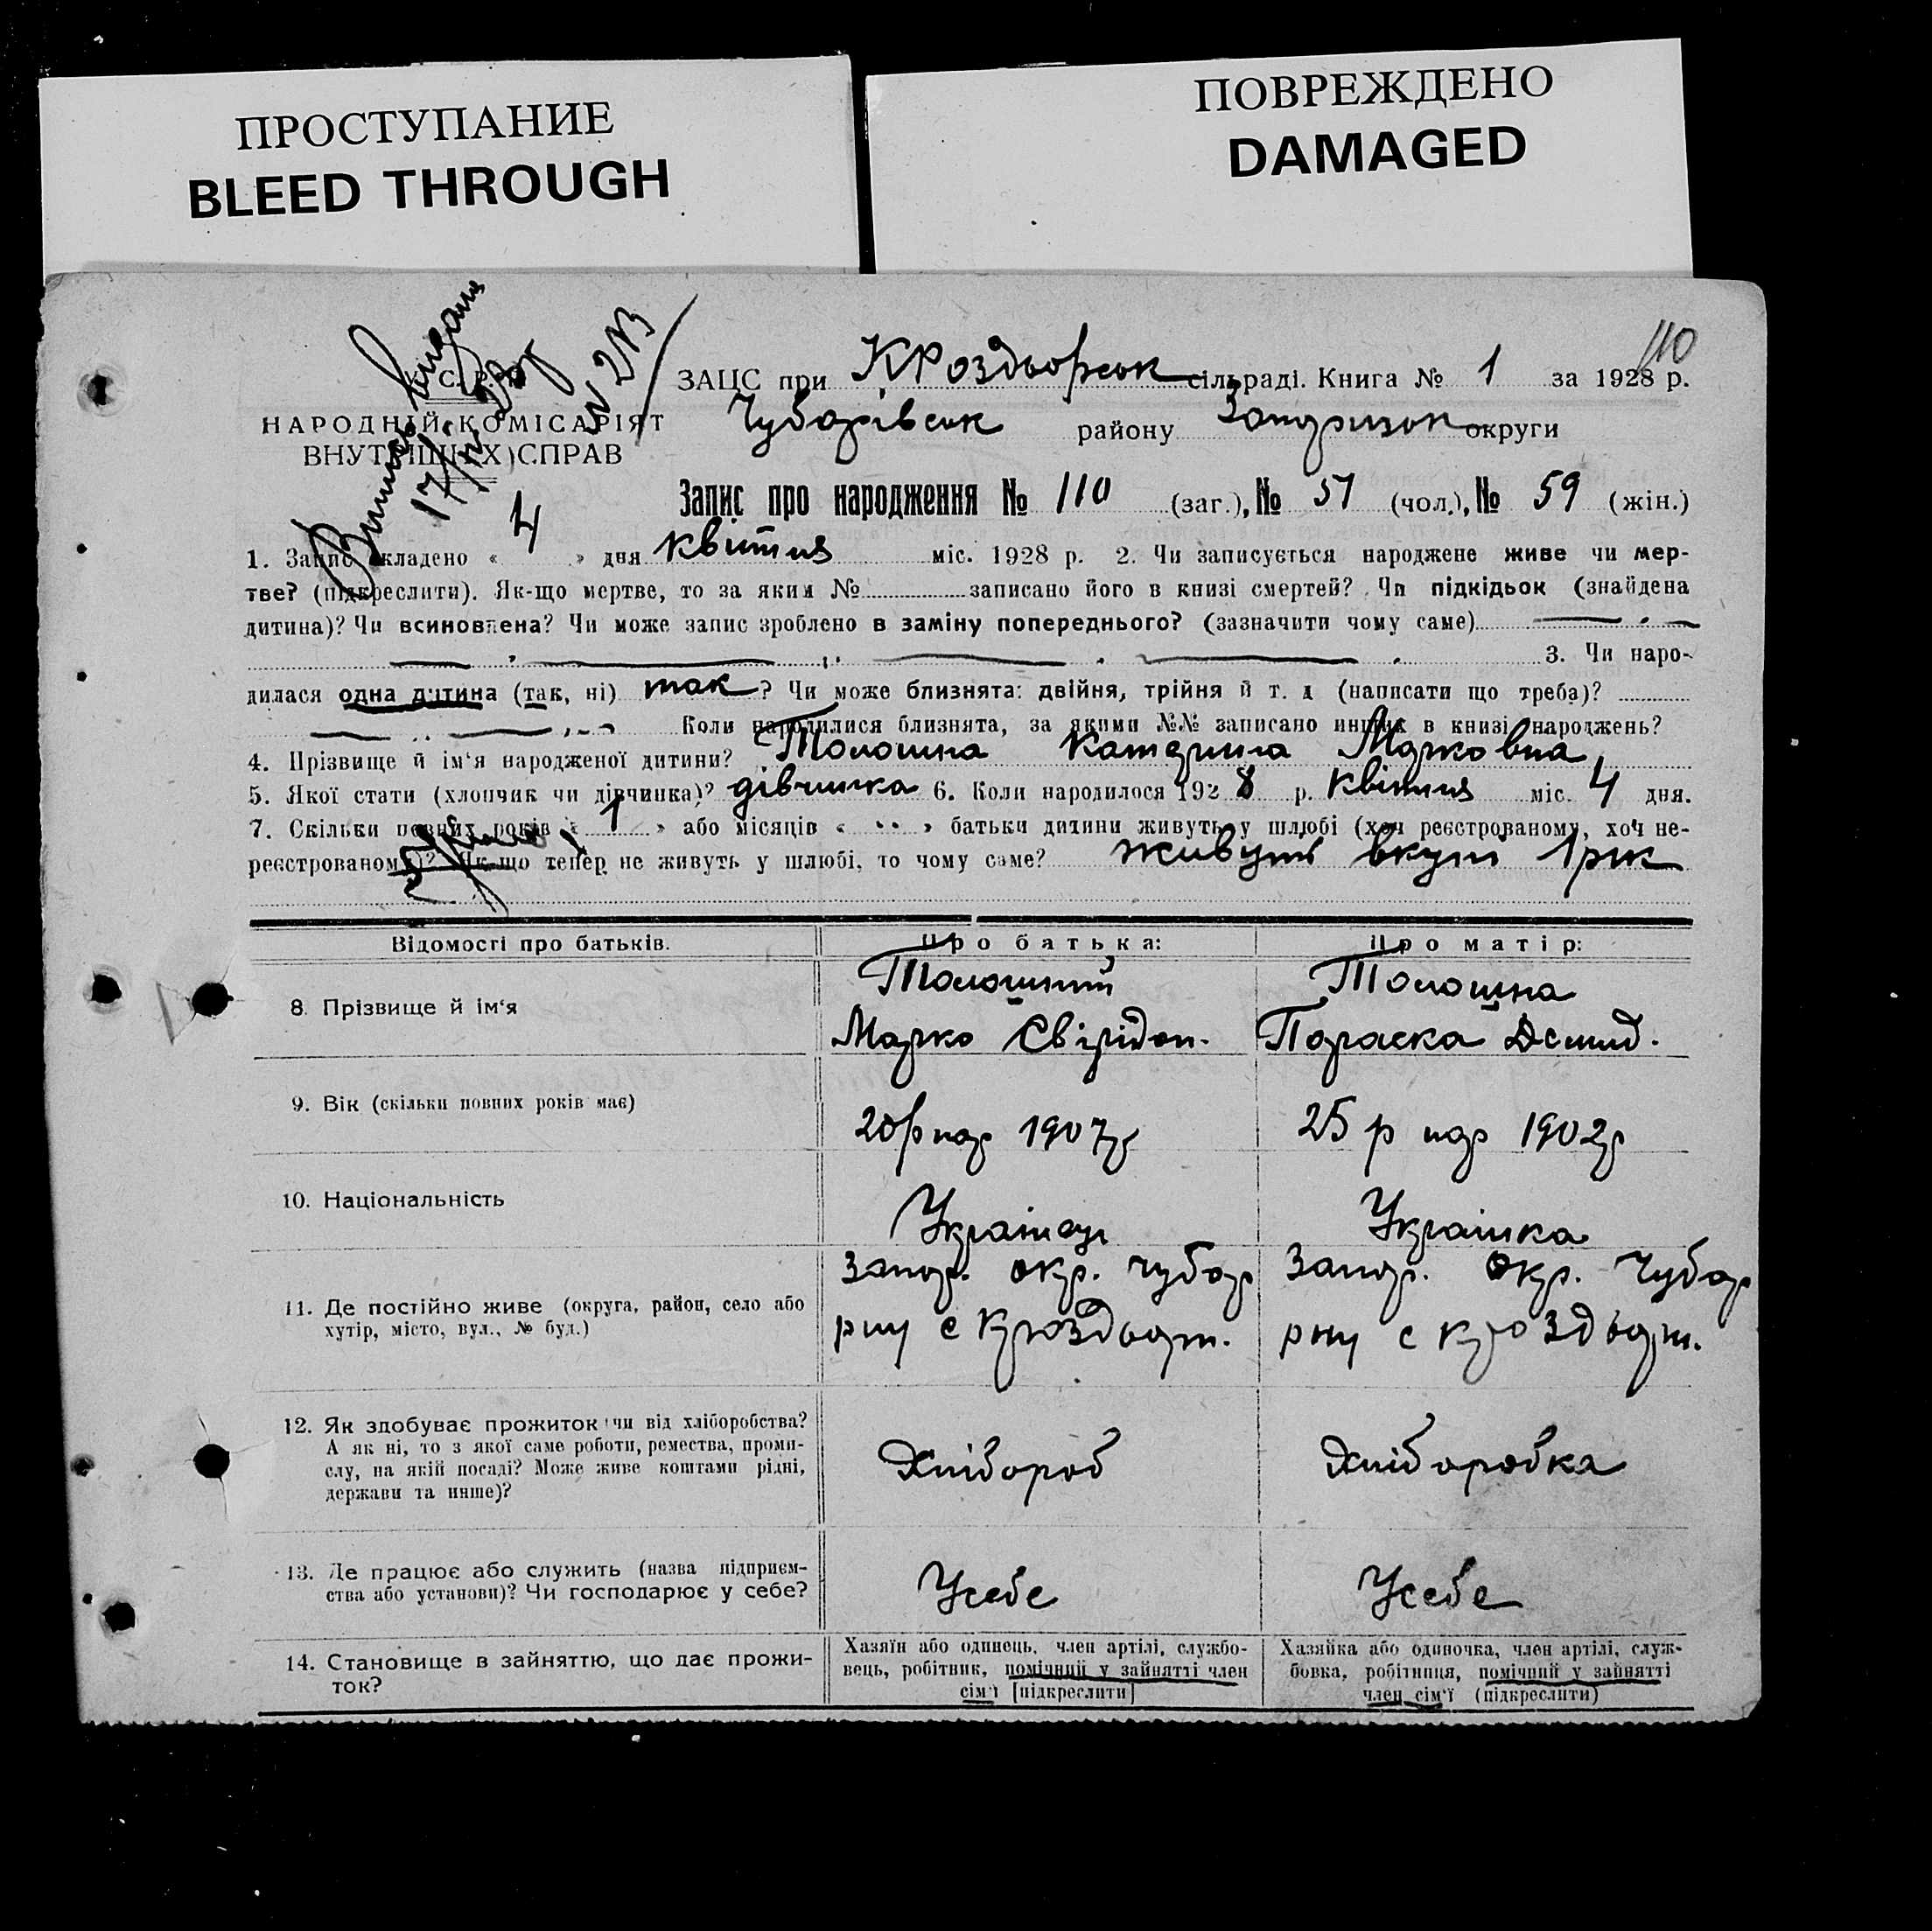 ПРОСТУПАНИЕ
BLEED THROUGH
ПОВРЕЖДЕНО
DAMAGED
110
У. С. Р. Р.
НАРОДНІЙ КОМІСАРІЯТ
ВНУТРІШНІХ СПРАВ
Випись видана
17/IV
N 213
ЗАЦС при КРоздьорськ сільраді. Книга № 1 за 1928 р.
Чубарівськ району Запоризьк округи
Запис про народження № 110 (заг.), № 51 (чол.), № 59 (жін.)
1. Запис складено « 4 » дня квітня міс. 1928 р. 2. Чи записується народжене живе чи мер-
тве? (підкреслити). Як-що мертве, то за яким № записано його в книзі смертей? Чи підкідьок (знайдена
дитина)? Чи всиновлена? Чи може запис зроблено в заміну попереднього? (зазначити чому саме)
3. Чи наро-
дилася одна дитина (так, ні) так ? Чи може близнята: двійня, трійня й т. д (написати що треба)?
Коли народилися близнята, за якими №№ записано инших в книзі народжень?
4. Прізвище й ім'я народженої дитини? Толошна Катерина Марковна
5. Якої стати (хлопчик чи дівчинка)? дівчинка 6. Коли народилося 1928 р. квітня міс. 4 дня.
7. Скільки повних років « 1 » або місяців « » батьки дитини живуть у шлюбі (хоч реєстрованому, хоч не-
реєстрованому)? Як-що тепер не живуть у шлюбі, то чому саме? живуть вкупі 1 рік
Відомості про батьків. Про батька: Про матір:
8. Прізвище й ім'я
Толошний Марко Свірідон.
Толошна Параска Демид.
9. Вік (скільки повних років має)
20 р нар 1907 р
25 р нар 1902 р
10. Національність
Українець
Українка
11. Де постійно живе (округа, район, село або
хутір, місто, вул., № буд.)
Запор. окр. Чубар
рну с Кроздьорт.
Запор. окр. Чубар
рну с Кроздьорт.
12. Як здобуває прожиток чи від хліборобства?
А як ні, то з якої саме роботи, ремества, проми-
слу, на якій посаді? Може живе коштами рідні,
держави та инше)?
Хлібороб
Хліборобка
13. Де працює або служить (назва підприєм-
ства або установи)? Чи господарює у себе?
Усебе
Усебе
14. Становище в зайняттю, що дає прожи-
ток?
Хазяїн або одинець, член артілі, службо-
вець, робітник, помічний у зайнятті член
сім'ї [підкреслити]
Хазяйка або одиночка, член артілі, служ-
бовка, робітниця, помічний у зайнятті
член сім'ї (підкреслити)